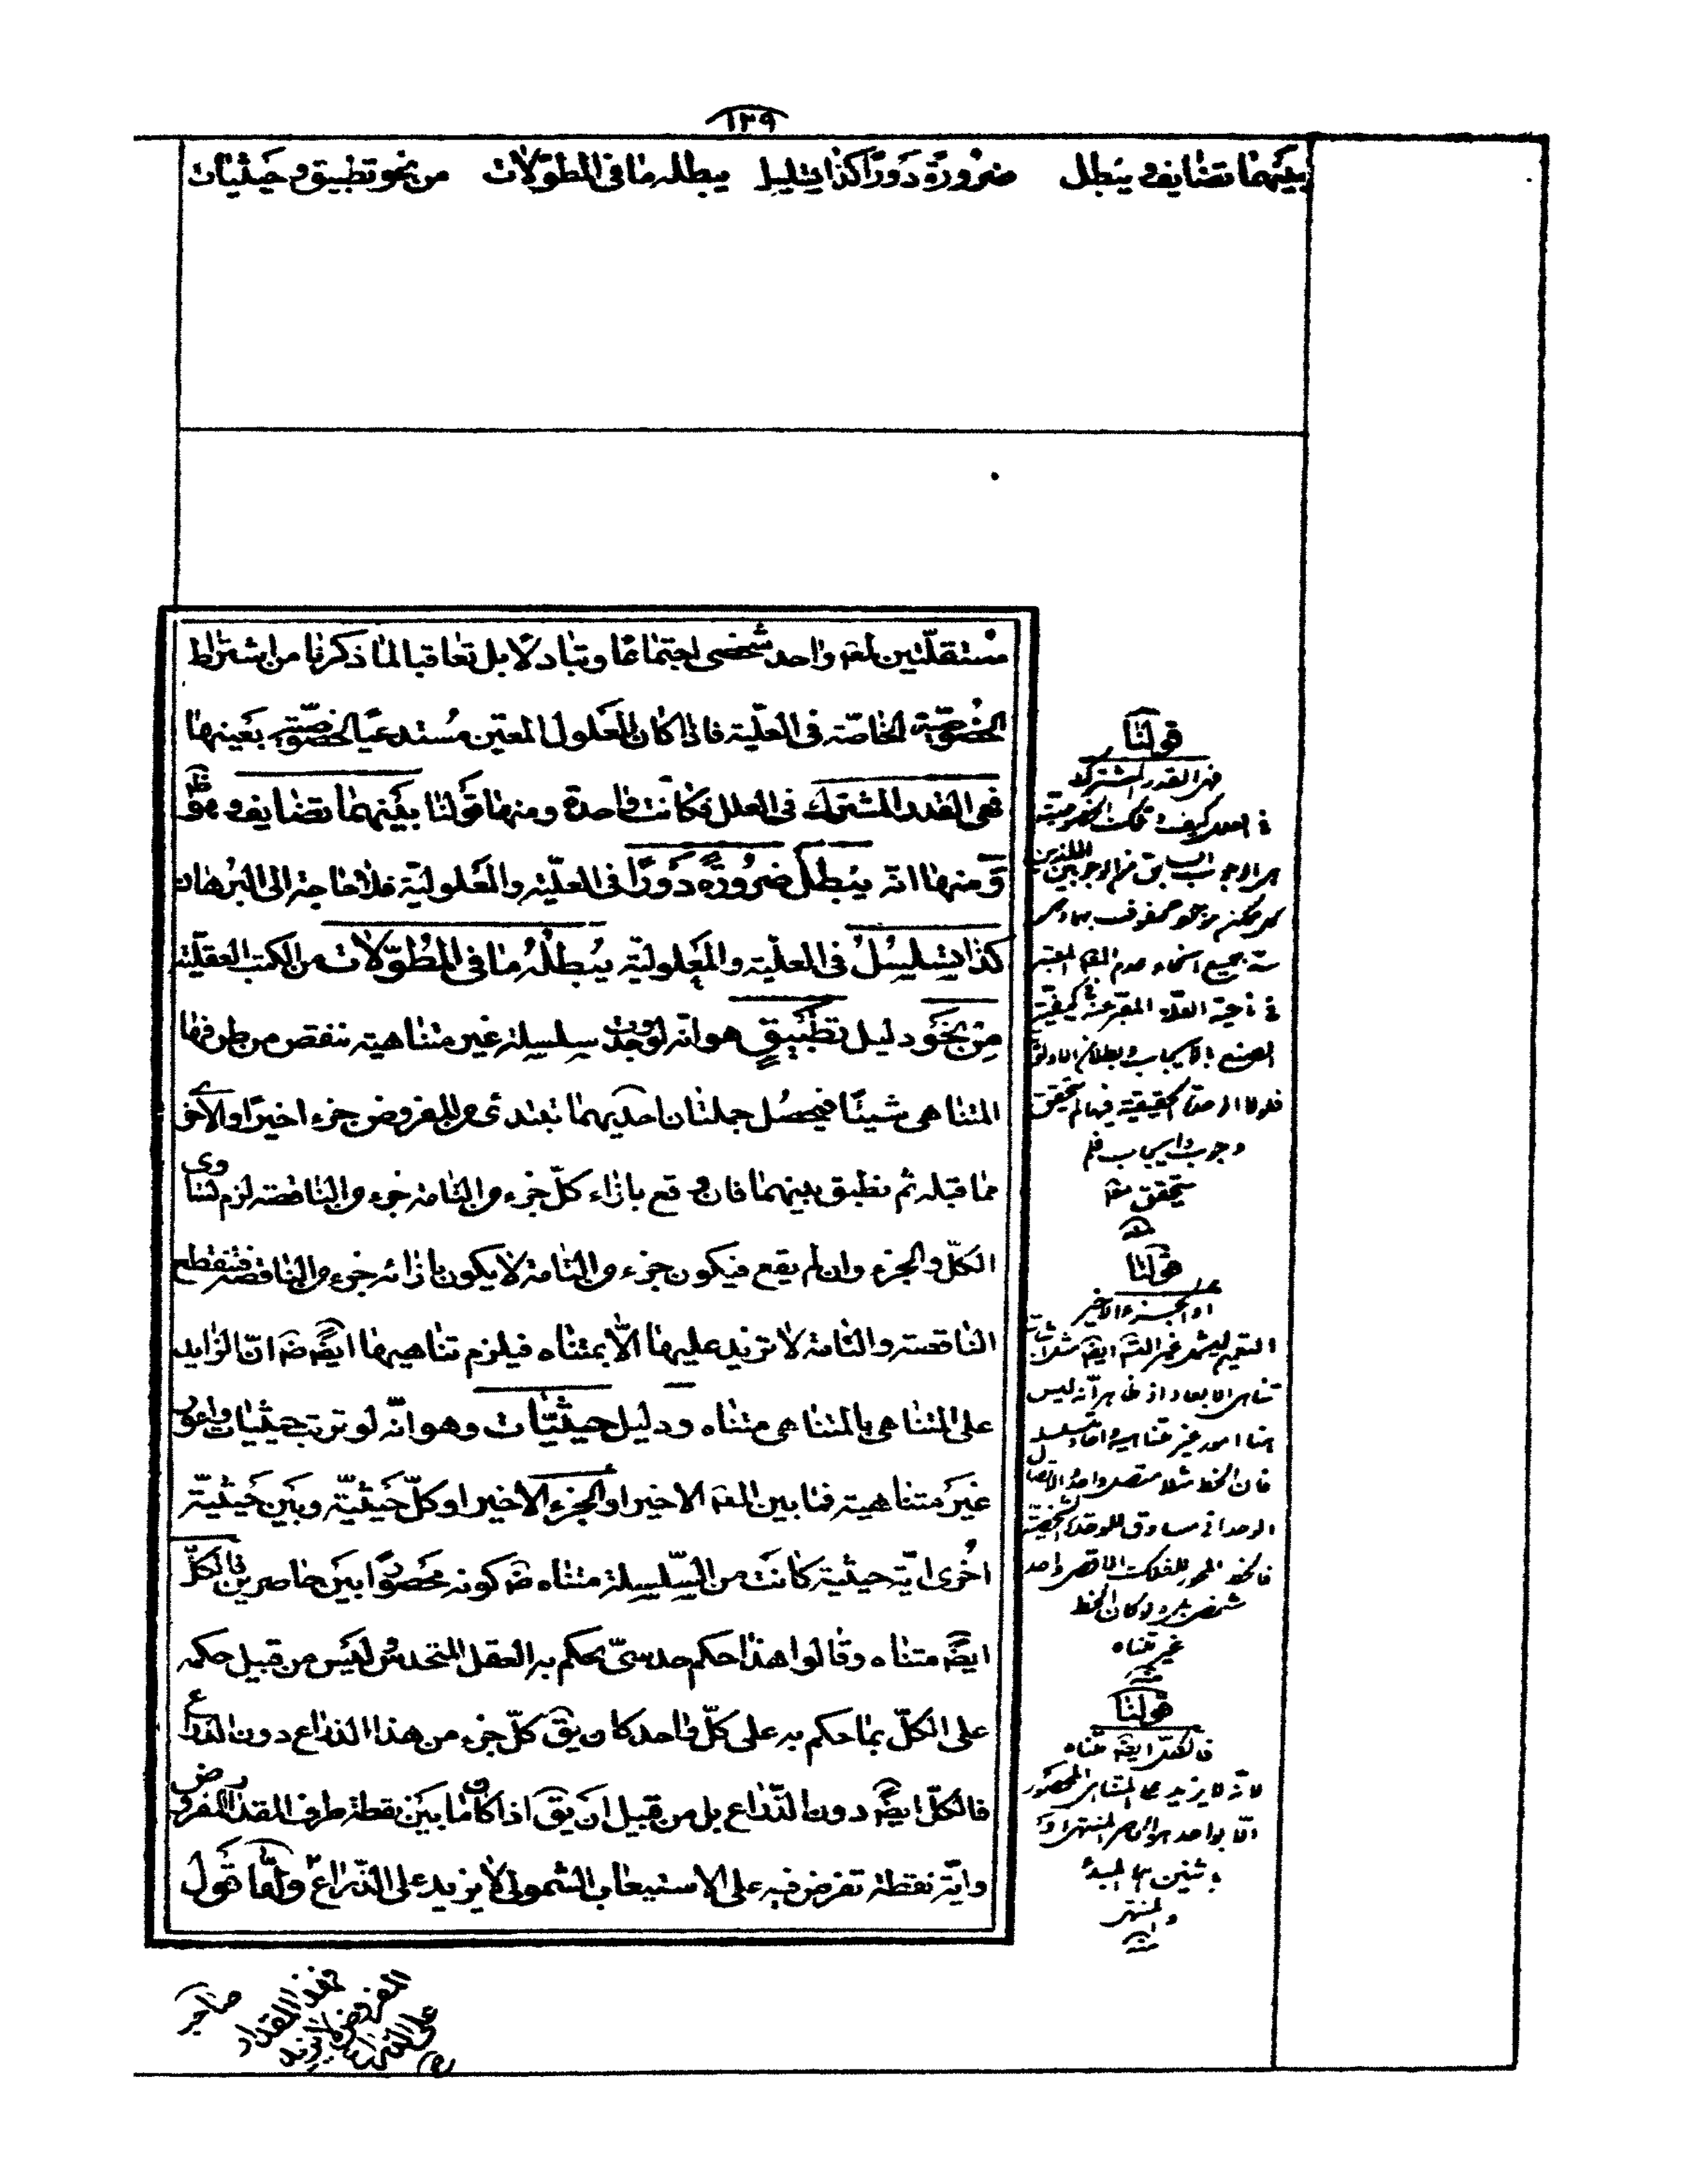 ١٣٩
بينهما تضايف و يبطل ضرورة دورا كذا يتسلسل يبطله ما فى المطولات من نحو تطبيق و حيثيات
مستقلتين لمعه واحد شخصى اجتماعا و تبادلا بل تعاقبا لما ذكرنا من اشتراط
الخصوصية الخاصة فى العلية فاذا كان المعلول المعين مستدعيا لخصوصية بعينها
فهى القدر المشترك فى العلل فكانت واحدة و منها قولنا بينهما تضايف و هو ظ
و منها انه يبطل ضرورة دورا فى العلية و المعلولية فلا حاجة الى البرهان
كذا يتسلسل فى العلية و المعلولية يبطله ما فى المطولات من الكتب العقلية
من نحو دليل تطبيق هو انه لو وجدت سلسلة غير متناهية ننقص من طرفها
المتناهى شيئا فيحصل جملتان احديهما تبتدئ من المفروض جزء اخيرا و الاخرى
مما قبله ثم نطبق بينهما فان وقع بازاء كل جزء من التامة جزء من الناقصة لزم تساوى
الكل و الجزء و ان لم يقع فيكون جزء من التامة لا يكون بازائه جزء من الناقصة فتنقطع
الناقصة و التامة لا تزيد عليها الا بمتناه فيلزم تناهيها ايضه ضه ان الزايد
على المتناهى بالمتناهى متناه و دليل حيثيات و هو انه لو ترتب حيثيات و امور
غير متناهية فما بين المعه الاخير او الجزء الاخير او كل حيثية و بين حيثية
اخرى اية حيثية كانت من السلسلة متناه ضه كونه محصورا بين حاصرين فالكل
ايضه متناه و قالوا هذا حكم حدسى يحكم به العقل المتحدس ليس من قبيل حكمه
على الكل بما حكم به على كل واحد كان يق كل جزء من هذا الذراع دون الذراع
فالكل ايضه دون الذراع بل من قبيل ان يق اذا كان ما بين نقطة طرف المقدار المفروض
و اية نقطة تفرض فيه على الاستيعاب الشمولى لا يزيد على الذراع و لما قول
قولنا
فهى القدر المشترك
فى العلل كيف و تلك الخصوصية
هى الوجوب السابق من الوجوبين اللذين
كل ممكن موجود محفوف بهما و هى
سد جميع انحاء عدم المعه المعتبر
فى ناحية العلة المعبر عنه
فلولا الوحدة الحقيقية فيها لم يتحقق
وجوب و ايجاب فلم
يتحقق معه
منه
قولنا
او الجزء الاخير
التعميم ليشمل غير العلل ايضه مثل اثبات
تناهى الابعاد اذ ظاهر انه ليس
هنا امور غير متناهية
فان الخط مثلا متصل واحد و الاتصال
الوحدانى مساوق للوحدة الشخصية
فالخط المحور للفلك الاقصى واحد
شخصى بل و لو كان الخط
غير متناه
منه
قولنا
فالكل ايضه متناه
لانه لا يزيد على المتناهى المحصور
الا بواحد هو الحاصر المنتهى او
باثنين هما المبدء
و المنتهى
منه
فهذا المقدار
المفروض لا يزيد
على الذراع